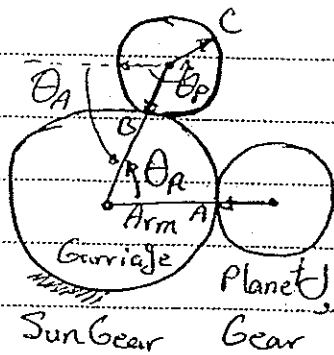 C
r
θA θP
B
θA
Arm A
Carriage
Planet
Sun Gear Gear